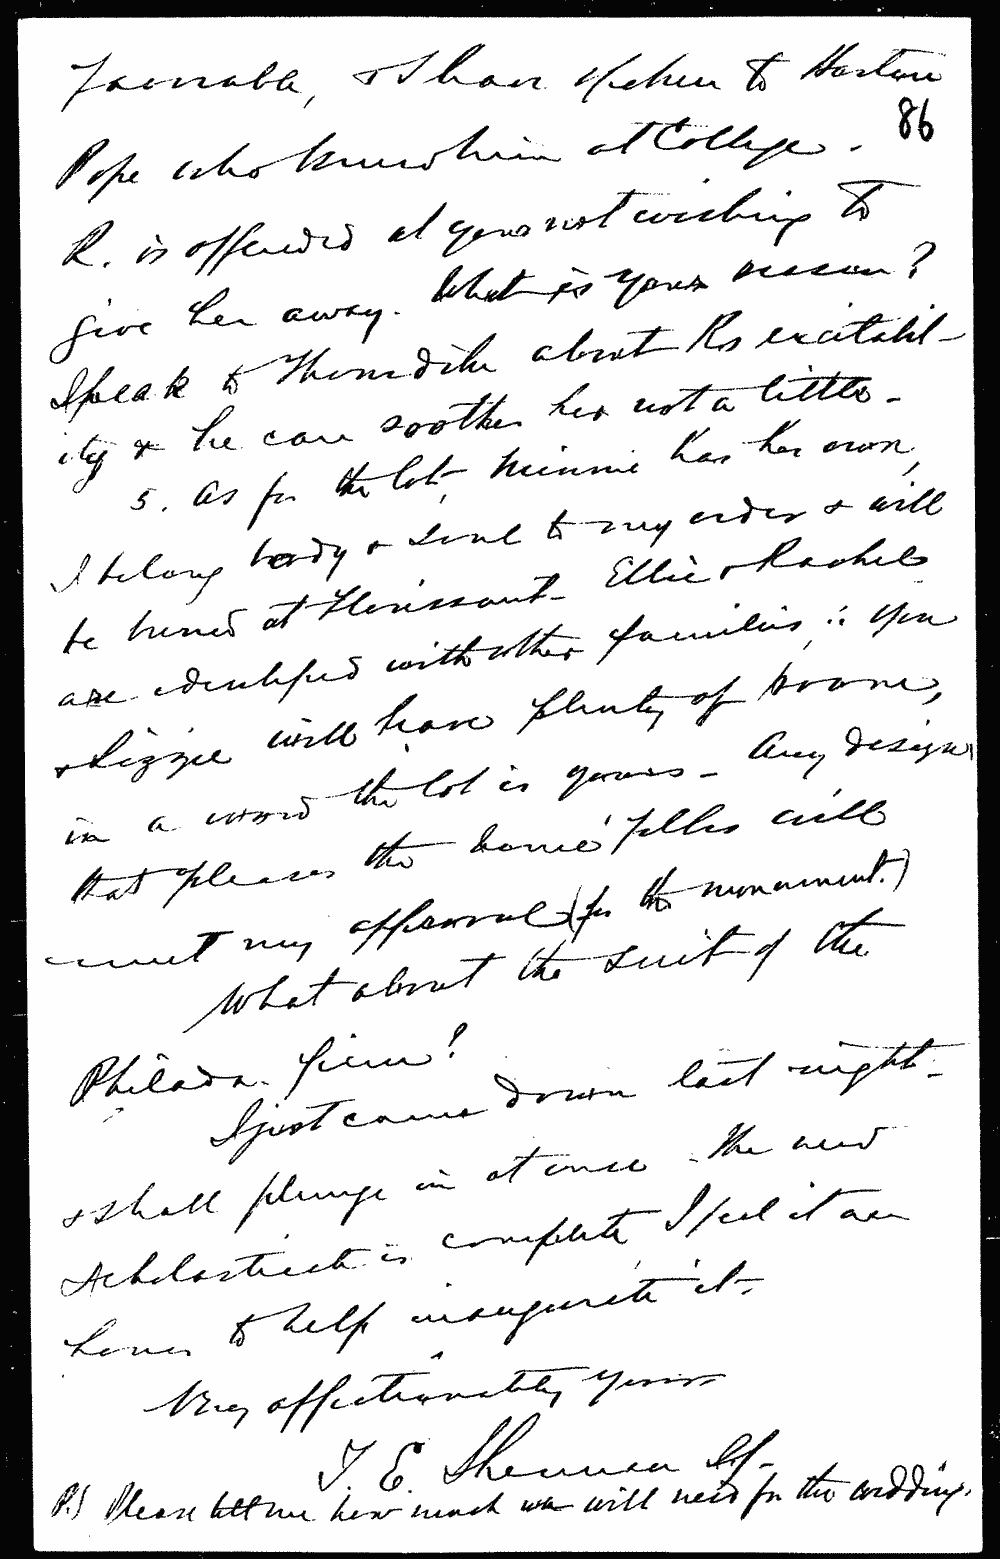 favorable, & I have spoken to Horton
86
Pope who knew him at College.
R. is offended at your not wishing to
give her away. What is your reason?
Speak to Thorndike about R's excitabil-
ity & he can soothe her not a little.
5. As for the lot, Minnie has her own,
I belong body & soul to my order & will
be buried at Florissant. Ellie & Rachel
are identified with other families; you
& Lizzie will have plenty of room,
in a word the lot is yours. Any design
that pleases the home folks will
meet my approval (for the monument.)
What about the suit of the
Philada. firm?
I just came down last night.
& shall plunge in at once. The new
scholasticate is complete I feel it an
honor to help inaugurate it.
Very affectionately yours
T. E. Sherman S.J.
P.S Please tell me how much we will need for the wedding.